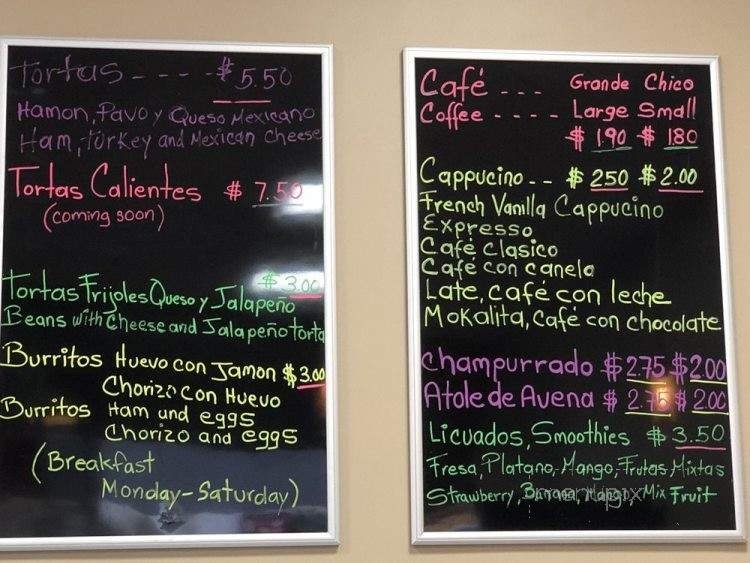 Tortas - - - - $ 5.50
Hamon, Pavo y Queso Mexicano
Ham, turkey and Mexican cheese
Tortas Calientes $ 7.50
(coming soon)
$ 3.00
Tortas Frijoles Queso y Jalapeño
Beans with Cheese and Jalapeño torta
Burritos Huevo con Jamon $ 3.00
Chorizo con Huevo
Burritos Ham and eggs
Chorizo and eggs
(Breakfast
Monday-Saturday)
Café - - - Grande Chico
Coffee - - - - Large Small
$ 1.90 $ 1.80
Cappucino - - $ 250 $ 2.00
French Vanilla Cappucino
Expresso
Café Clasico
Café con canela
Late, café con leche
Mokalita, café con chocolate
Champurrado $ 2.75 $ 2.00
Atole de Avena $ 2.75 $ 2.00
Licuados, Smoothies $ 3.50
Fresa, Platano, Mango, Frutas Mixtas
Strawberry, Banana, Mango, Mix Fruit